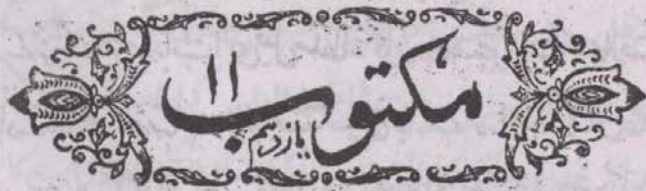 مکتوب ۱۱
یازدهم